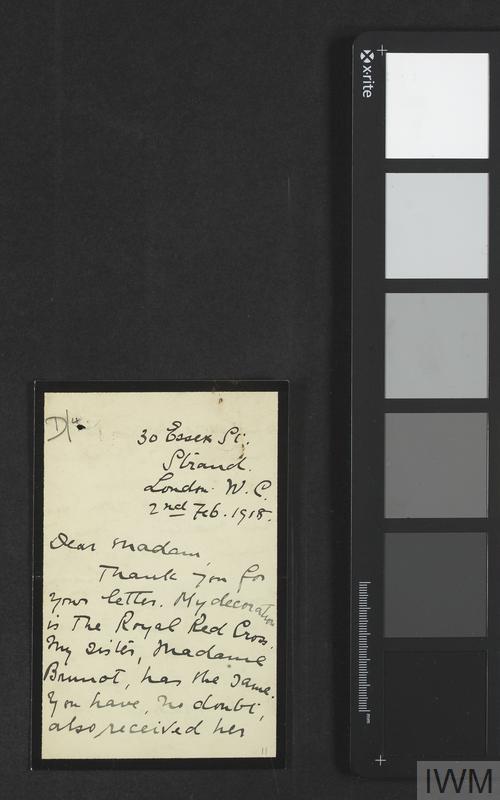 x·rite
D/4
30 Essex St.
Strand.
London. W. C.
2nd Feb. 1918.
Dear Madam,
Thank you for
your letter. My decoration
is The Royal Red Cross.
My sister, Madame
Brunot, has the same.
You have, no doubt,
also received her
11
mm
IWM